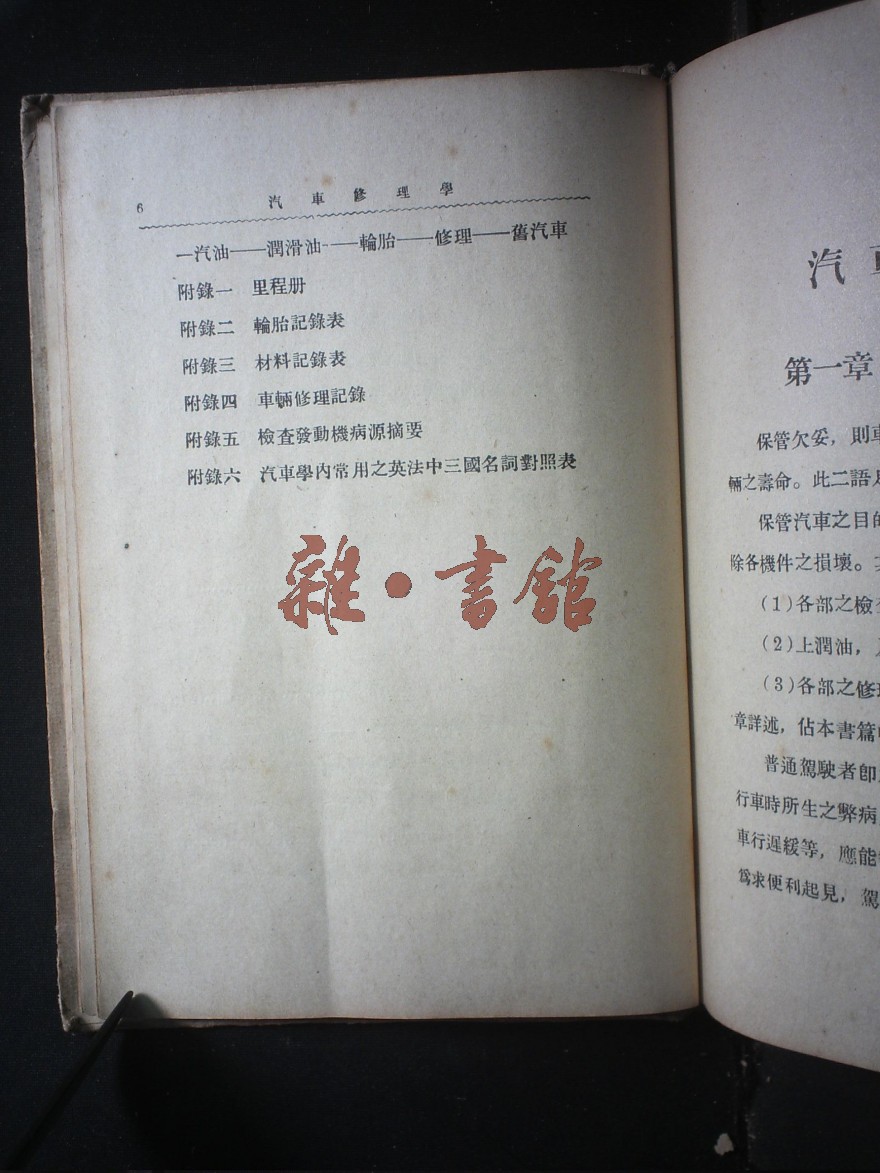 6 汽車修理學
—汽油——潤滑油——輪胎——修理——舊汽車
附錄一 里程册
附錄二 輪胎記錄表
附錄三 材料記錄表
附錄四 車輛修理記錄
附錄五 檢查發動機病源摘要
附錄六 汽車學內常用之英法中三國名詞對照表
雜·書館
汽車
第一章
保管欠妥，則車
輛之壽命。此二語
保管汽車之目的
除各機件之損壞。
(1)各部之檢查
(2)上潤油，
(3)各部之修理
章詳述，佔本書篇
普通駕駛者卽
行車時所生之弊病
車行遲緩等，應能
爲求便利起見，駕